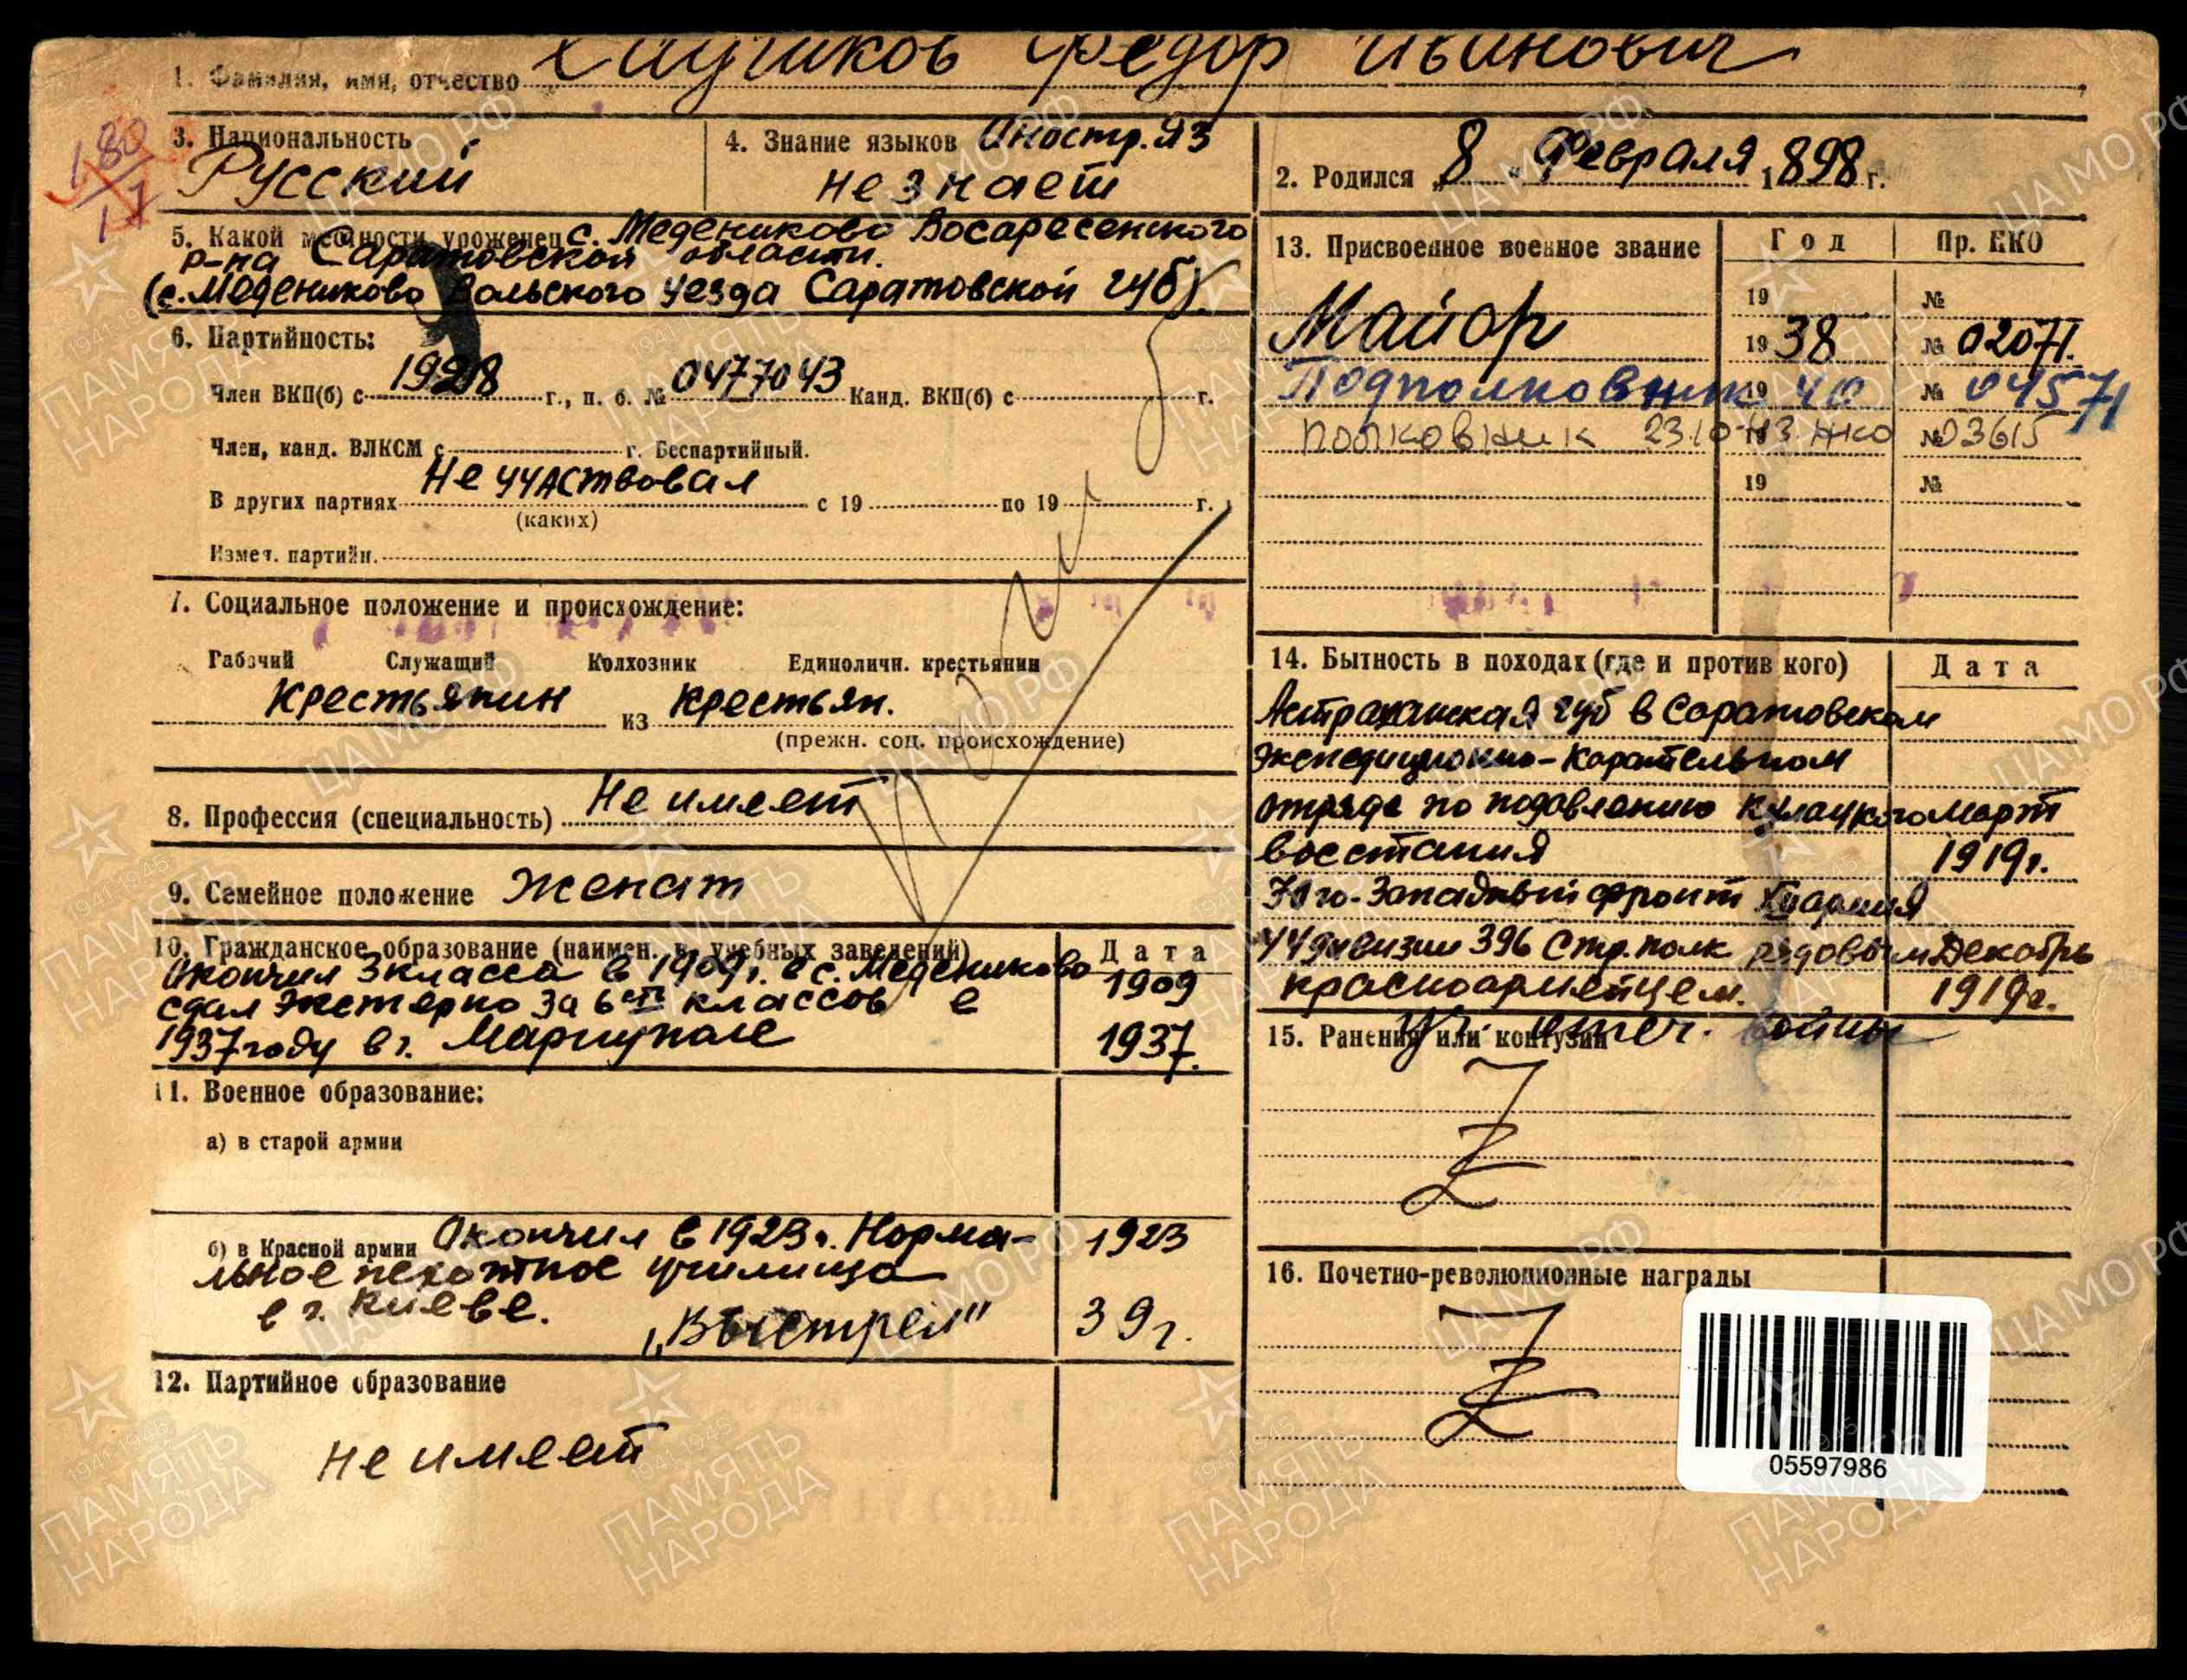 1. Фамилия, имя, отчество Федор Иванович
180
17
3. Национальность
Русский
4. Знание языков Иностр. яз
не знает
2. Родился „8“ Февраля 1898 г.
5. Какой местности уроженец с. Медениково Восаресенского
р-на Саратовской области.
(с. Медениково Вольского уезда Саратовской губ).
6. Партийность:
Член ВКП(б) с 1928 г., п. б. № 0477043 Канд. ВКП(б) с г.
Член, канд. ВЛКСМ с г. Беспартийный.
В других партиях Не участвовал с 19 по 19 г.
(каких)
Измен. партийн.
7. Социальное положение и происхождение:
Рабочий Служащий Колхозник Единоличн. крестьянин
Крестьянин из крестьян.
(прежн. соц. происхождение)
8. Профессия (специальность) Не имеет
9. Семейное положение Женат
10. Гражданское образование (наимен. в. учебных заведений) Дата
Окончил 3 класса в 1909г. в с. Медениково 1909
сдал экстерно за 6 классов в
1937 году в г. Мариуполе 1937.
11. Военное образование:
а) в старой армии
б) в Красной армии Окончил в 1923 г. Норма- 1923
льное пехотное училище
в г. Киеве.
„Выстрел" 39г.
12. Партийное образование
не имеет
13. Присвоенное военное звание Год Пр. НКО
19 №
Майор 1938 № 02071.
Подполковник 1940 № 04571
полковник 23.10.43 НКО № 03615
19 №
14. Бытность в походах (где и против кого) Дата
Астраханская губ в Саратовском
экспедиционно-карательном
отряде по подавлению кулацкого Март
восстания 1919г.
Юго-Западный фронт XII армия
44 дивизии 396 Стр. полк рядовым Декабрь
красноармейцем. 1919г.
15. Ранения или контузии
Уч. отеч. войны
16. Почетно-революционные награды
05597986
ЦАМО РФ
ПАМЯТЬ
НАРОДА
1941-1945